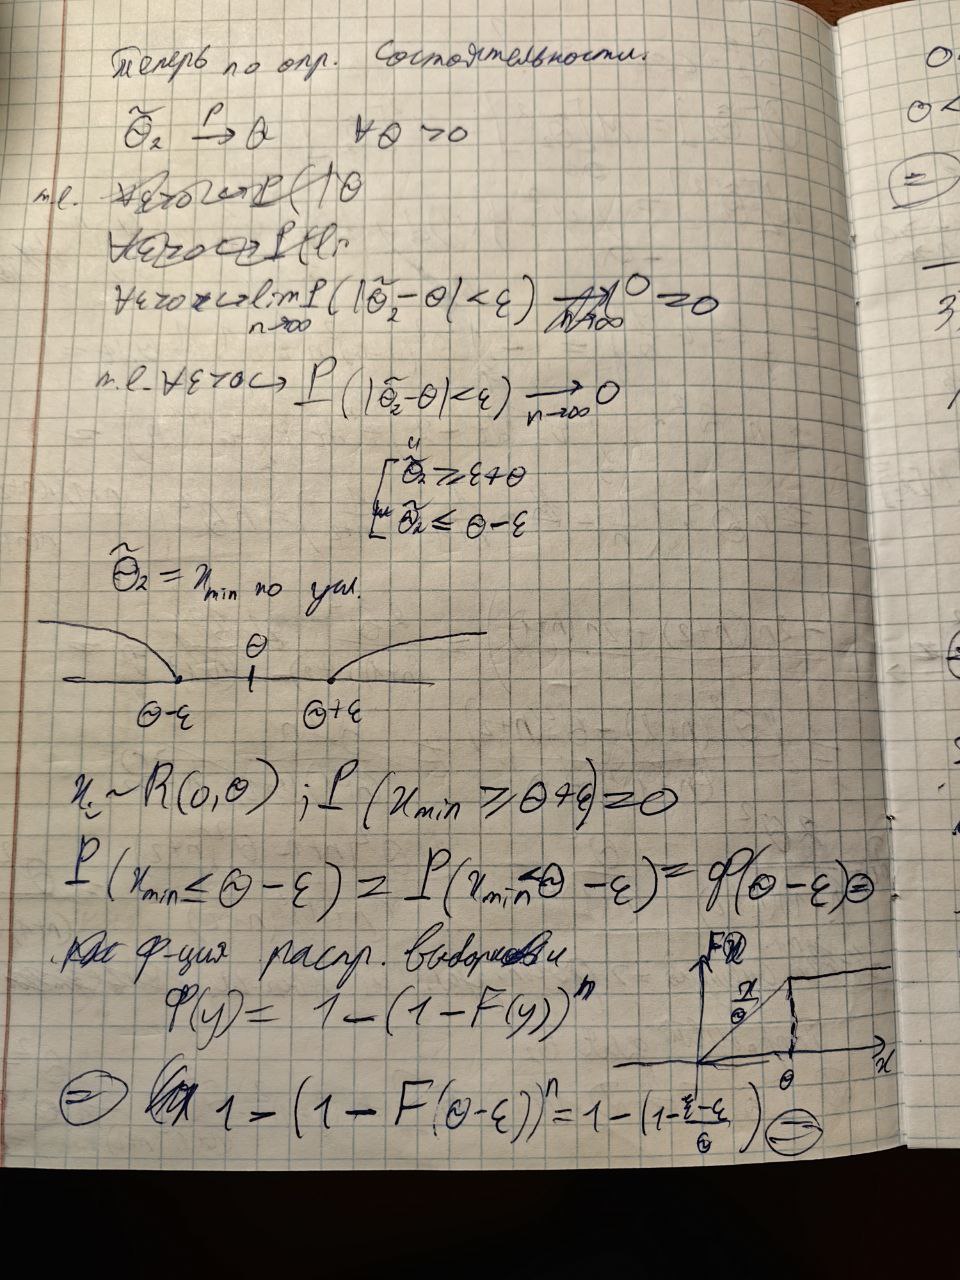 Теперь по опр. состоятельности.
θ̃₂ →ᴾ θ ∀θ > 0
т.е.
∀ε>0 ↪ lim_{n→∞} P(|θ̃₂ - θ| > ε) = 0
т.е. ∀ε>0 ↪ P(|θ̃₂ - θ| > ε) →_{n→∞} 0
[ θ̃₂ ≥ ε+θ
θ̃₂ ≤ θ-ε
θ̃₂ = x_min по усл.
θ
θ-ε θ+ε
x_i ~ R(0,θ) ; P(x_min ≥ θ+ε) = 0
P(x_min ≤ θ-ε) = P(x_min ≤ θ-ε) = φ(θ-ε) ⊜
ф-ция распр.
φ(y) = 1 - (1 - F(y))ⁿ
F(x)
x/θ
θ x
⊜ 1 - (1 - F(θ-ε))ⁿ = 1 - (1 -